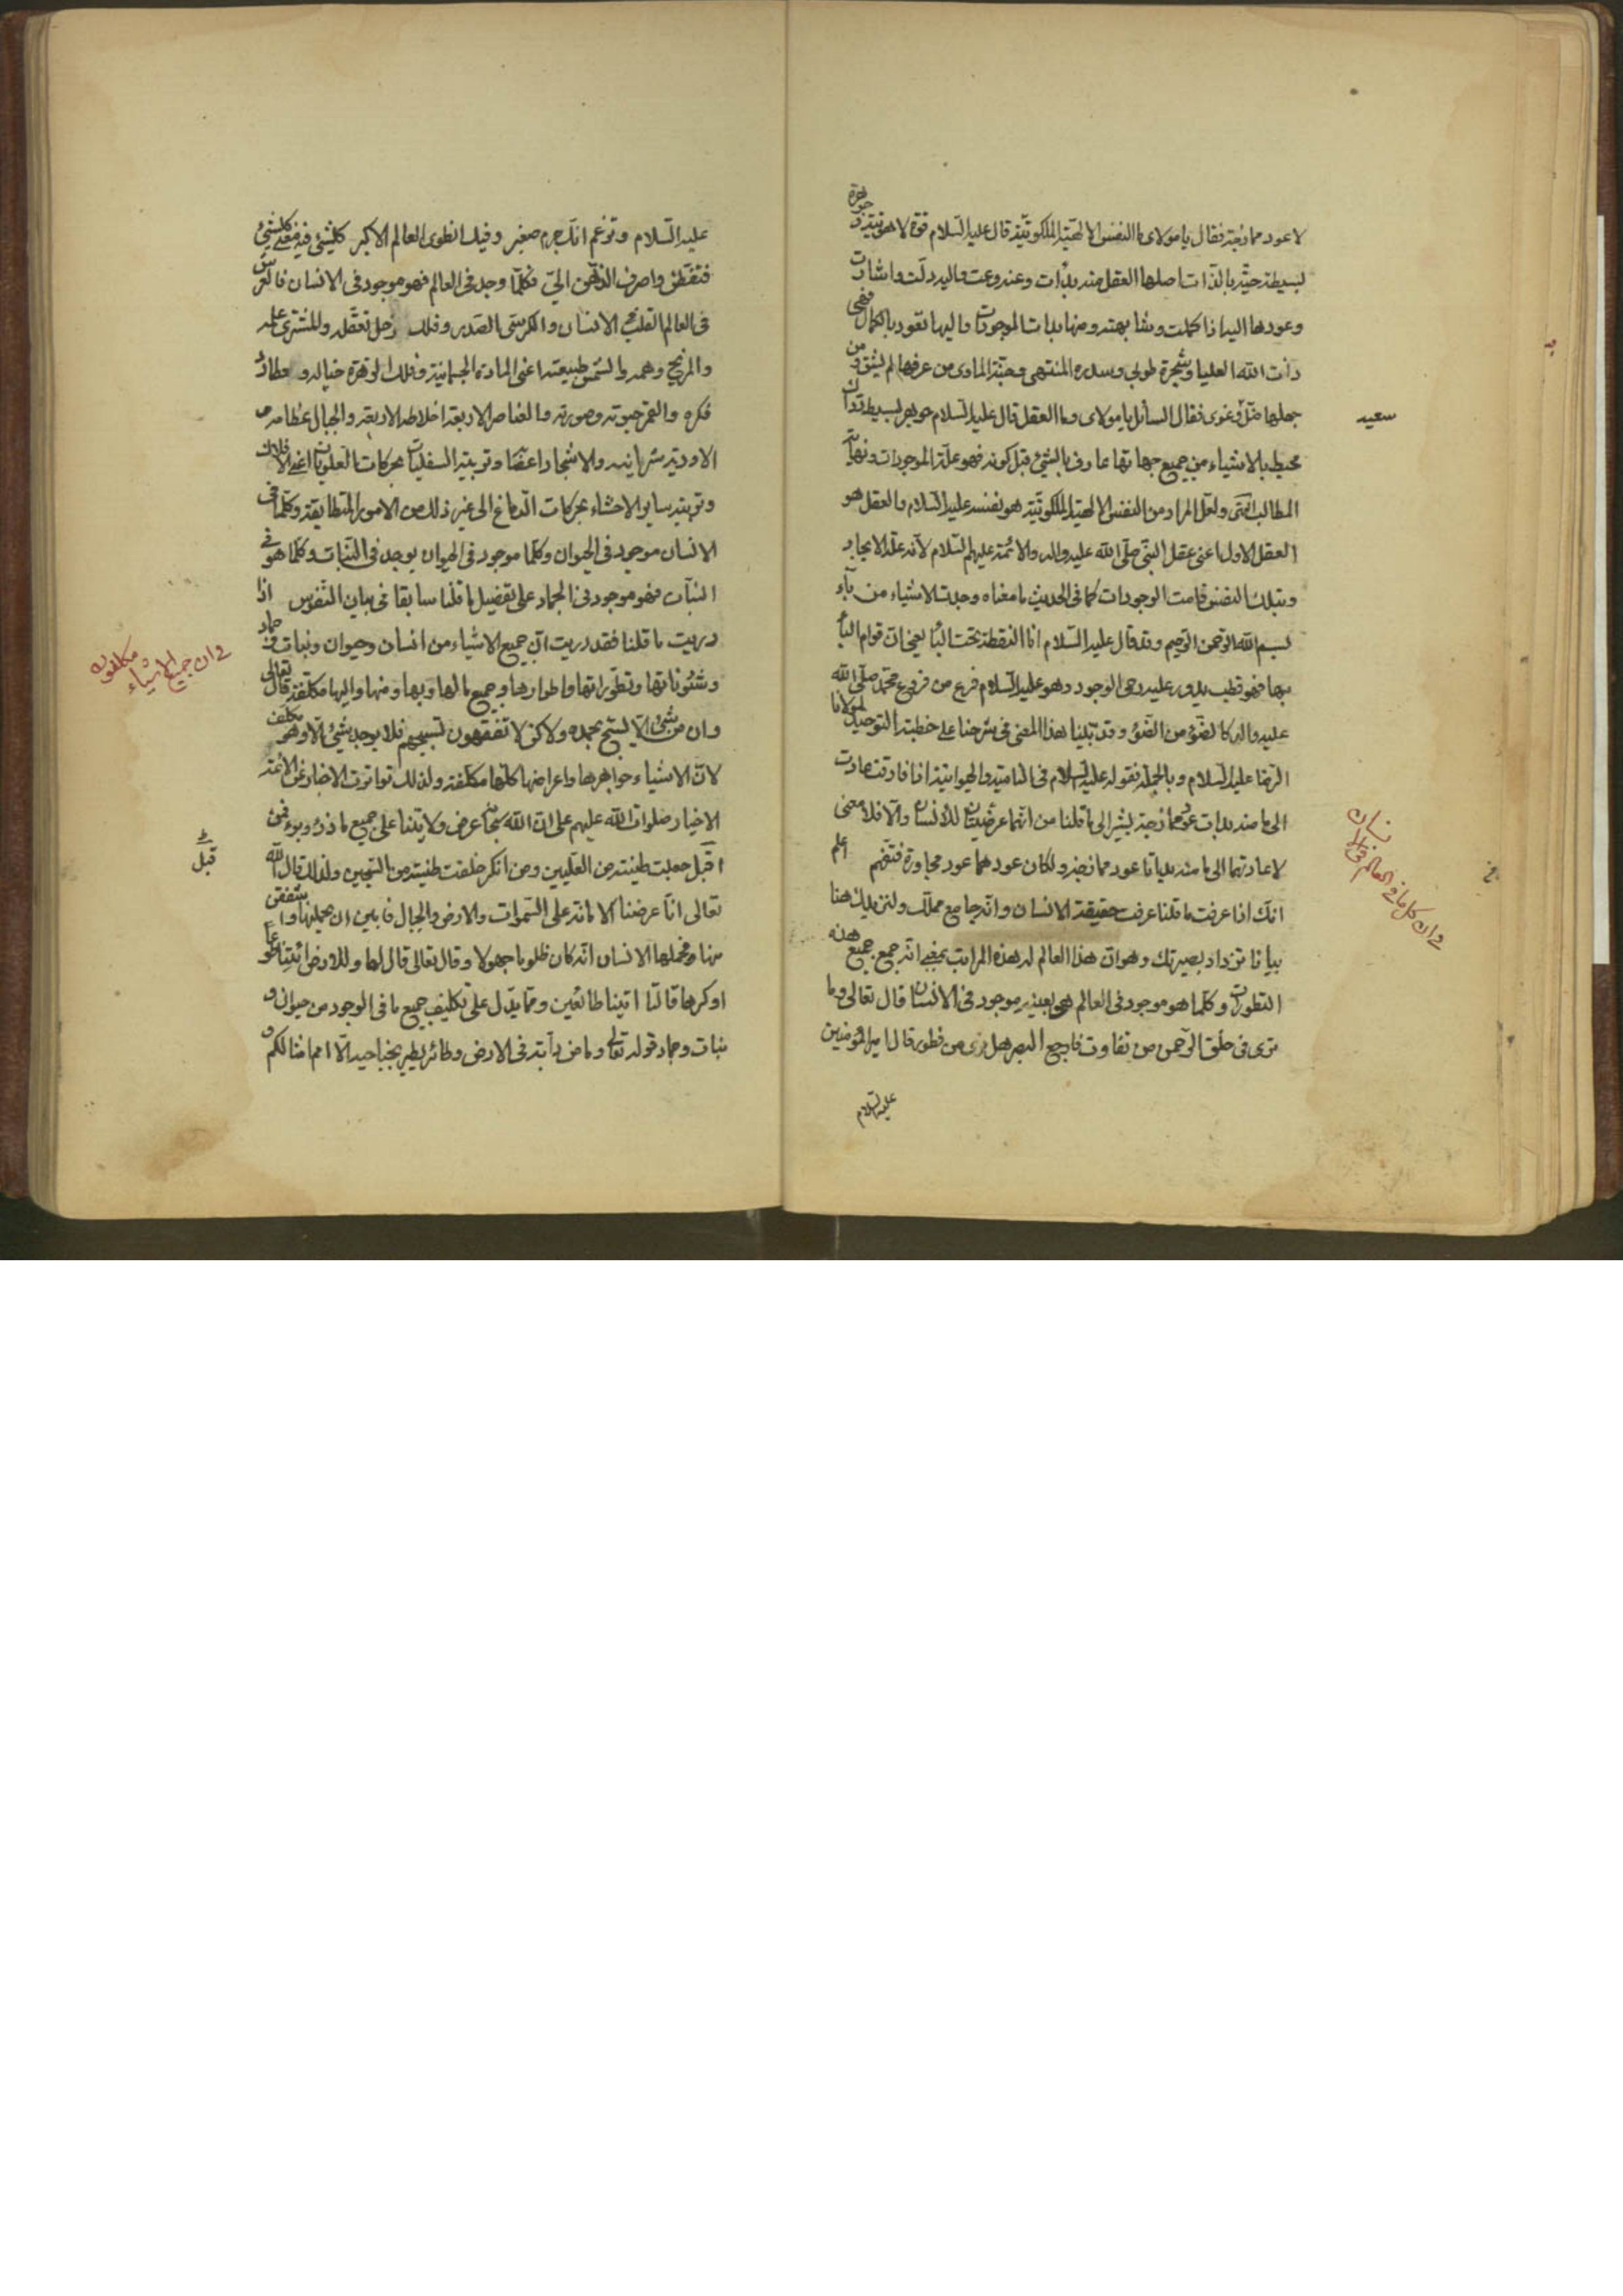 لا عود ممازجة فقال يا مولاى ما النفس الالهية الملكوتية قال عليه السلام قوة لاهوتية و جوهرة
بسيطة حيّة بالذات اصلها العقل منه بدأت وعنه وعت واليه دلّت واشارت
وعودها اليه اذا كملت وشابهته ومنها بدأت الموجودات واليها تعود بالكمال فهى
ذات الله العليا وشجرة طوبى وسدرة المنتهى وجنّة المأوى من عرفها لم يشق ومن
جهلها ضلّ وغوى فقال السائل يا مولاى وما العقل قال عليه السلام جوهر بسيط درّاك
محيط بالاشياء من جميع جهاتها عارف بالشئ قبل كونه فهو علّة الموجودات ونهاية
المطالب انتهى ولعل المراد من النفس الالهية الملكوتيّة هو نفسه عليه السلام والعقل هو
العقل الاول اعنى عقل النبى صلّى الله عليه واله والائمة عليهم السلام لانه علّة الايجاد
وبتلك النفس قامت الوجودات كما فى الحديث ما معناه وجدت الاشياء من باء
بسم الله الرحمن الرحيم وقد قال عليه السلام انا النقطة تحت الباء يعنى ان قوام الباء
بها فهو قطب يدور عليه رحى الوجود وهو عليه السلام فرع من فروع محمد صلّى الله
عليه واله كالضوء من الضوء وقد بيّنا هذا المعنى فى شرحنا على خطبة التوحيد لمولانا
الرضا عليه السلام وبالجملة فقوله عليه السلام فى النامية والحيوانية اذا فارقت عادت
الى ما منه بدأت عود ممازجة يشير الى ما قلنا من انهما عرضيتان للانسان والا فلا معنى
لاعادتهما الى ما منه بدأتا عود ممازجة ولكان عودهما عود مجاورة فتفهم اعلم
انك اذا عرفت ما قلنا عرفت حقيقة الانسان وانه جامع مملّك ولنزيدك هنا
بيانا تزداد بصيرتك وهو ان هذا العالم له هذه المراتب بمعنى انه جمع جميع هذه
التطورات وكلّما هو موجود فى العالم هو بعينه موجود فى الانسان قال تعالى وما
ترى فى خلق الرحمن من تفاوت فارجع البصر هل ترى من فطور قال امير المؤمنين
عليه السلام
سعيد
فى ان كل ما فى العالم فى الانسان
عليه السلام وتزعم انك جرم صغير وفيك انطوى العالم الاكبر كلشئ فيه معنى كلشئ
فتفطّن واصرف الذهن الىّ فكلّما وجد فى العالم فهو موجود فى الانسان فالعرش
فى العالم القلب فى الانسان والكرسى الصدر وفلك زحل تعقله والمشترى علمه
والمريخ وهمه والشمس طبيعته اعنى المادة الجسمانية وفلك الزهرة خياله وعطارد
فكره والقمر حيوته وصورته والعناصر الاربعة اخلاطه الاربعة والجبال عظامه و
الاودية شرايينه والاشجار اعضا وتربية السفليات بحركات العلويات اعنى الافلاك
وتربية ساير الاحشاء بحركات الدماغ الى غير ذلك من الامور المتطابقة وكلّما فى
الانسان موجود فى الحيوان وكلّما موجود فى الحيوان يوجد فى النبات وكلّما هو فى
النبات فهو موجود فى الجماد على تفصيل ما قلنا سابقا فى بيان النفوس اذا
دريت ما قلنا فقد دريت ان جميع الاشياء من انسان وحيوان ونبات وجماد
وشئوناتها وتطوراتها واطوارها وجميع ما لها وبها ومنها واليها مكلّفة قال تعالى
وان من شئ الا يسبّح بحمده ولاكن لا تفقهون تسبيحهم فلا يوجد شئ الا وهو مكلف
لان الاشياء جواهرها واعراضها كلّها مكلّفة ولذلك تواترت الاخبار عن الائمة
الاخيار صلوات الله عليهم على ان الله سبحانه عرض ولايتنا على جميع ما ذرء وبرء فمن
اقبل جعلت طينته من العلّيين ومن انكر خلقت طينته من السجين ولذلك قال الله
تعالى انّا عرضنا الامانة على السموات والارض والجبال فابين ان يحملنها واشفقن
منها وحملها الانسان انه كان ظلوما جهولا وقال تعالى قال لها وللارض ائتيا طوعا
او كرها قالتا اتينا طائعين ومما يدل على تكليف جميع ما فى الوجود من حيوان و
نبات وجماد قوله تعالى وما من دابّة فى الارض ولا طائر يطير بجناحيه الّا امم امثالكم و
فى ان جميع الاشياء مكلفون
قبل